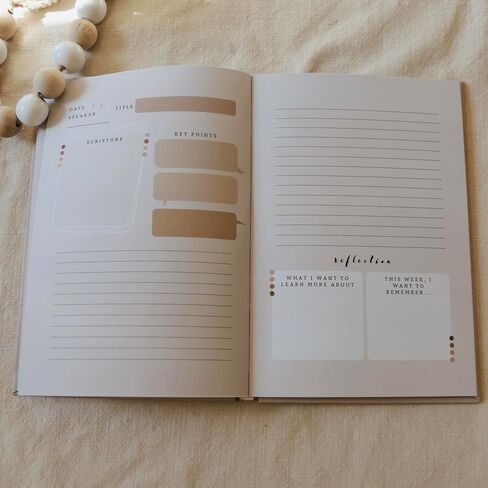 DATE / / TITLE
SPEAKER
SCRIPTURE
KEY POINTS
reflection
WHAT I WANT TO
LEARN MORE ABOUT
THIS WEEK, I
WANT TO
REMEMBER...